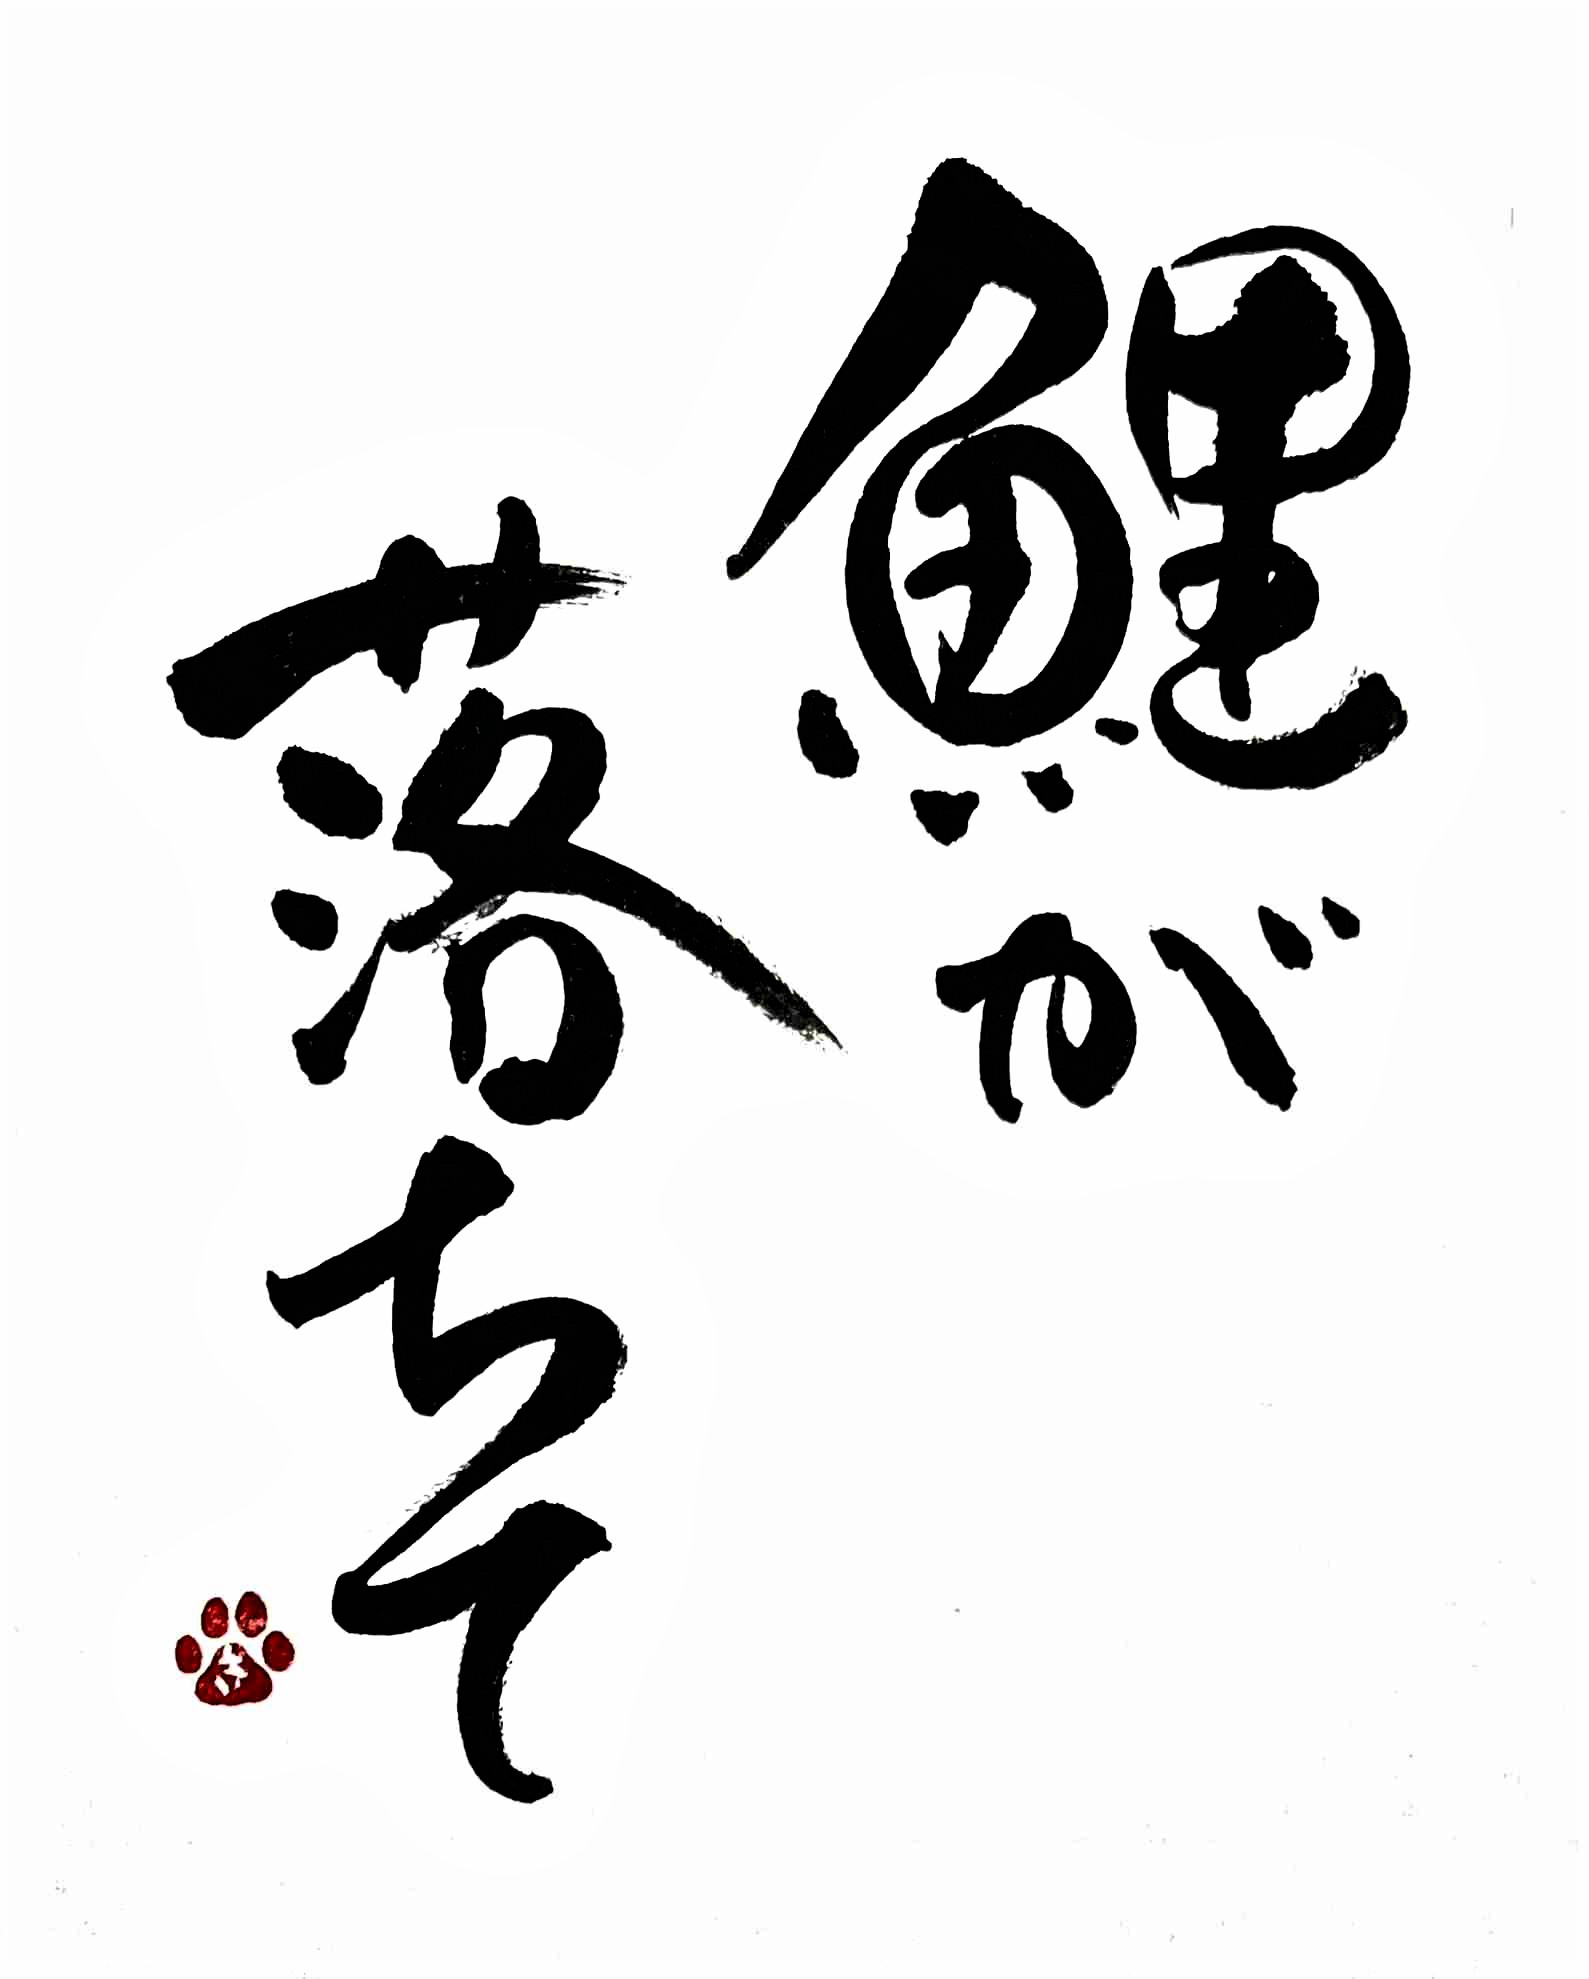 鯉が
落ちて